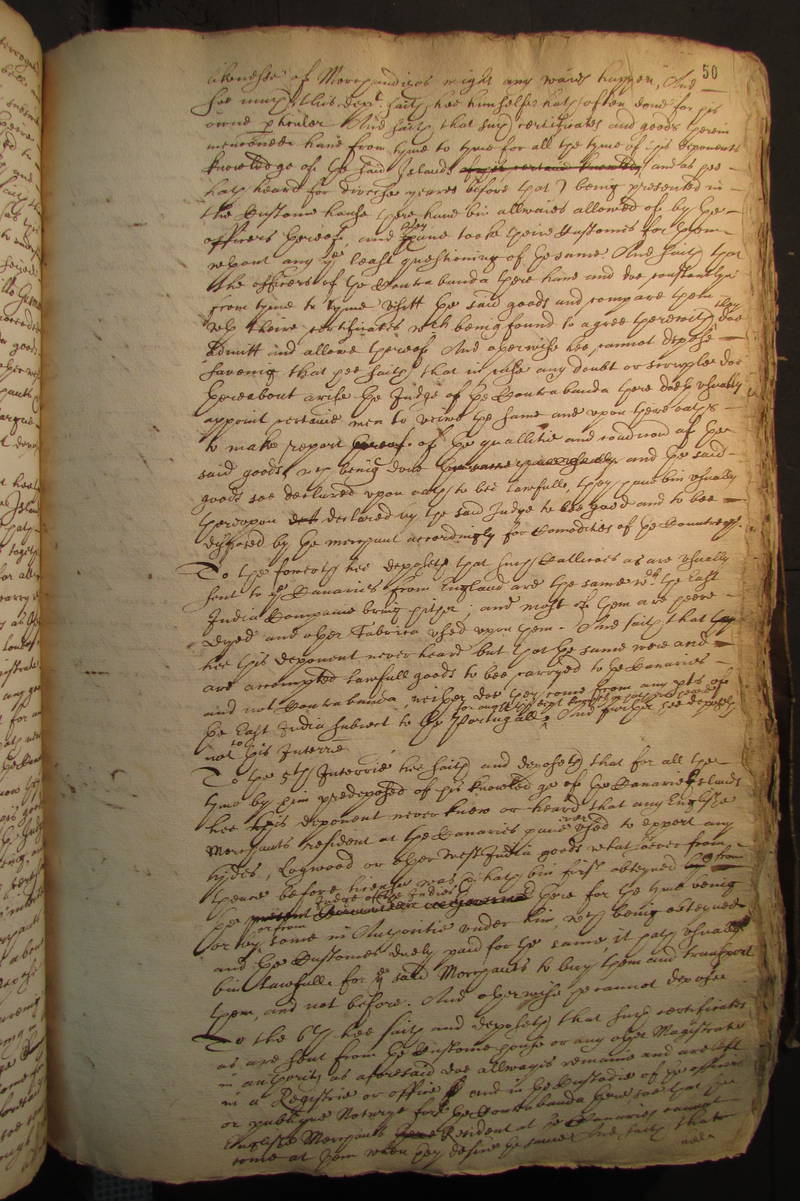 50
likenesse of Merchandizes might any waies happen, And
soe much this dept. saith hee himselfe hath often done for his
owne pticuler And saith that such certificates and goods therein
mencioned have from tyme to tyme for all the tyme of his deponents
knowledge of the said Islands and as hee
hath heard for diverse yeares before that being presented in
the Custome house there have bin allwaies allowed of by the
officers thereof, and they have tooke their Customes for them
without any the least questioning of the same And saith that
the officers of the Contrabanda there have and doe constantly
from tyme to tyme visitt the said goods and compare them
wth theire certificates wch being found to agree therewith they doe
admitt and allowe thereof And otherwise hee cannot depose
saveing that hee saith that in case any doubt or scruple doe
thereabout arise the Judge of the Contrabanda there doth usually
appoint certaine men to veiwe the same and upon theire oathes
to make report of the quallitie and condicon of the
said goods, wch being done and the said
goods soe declared upon oath to bee lawfull, they have bin usually
thereupon declared by the said Judge to bee good and to bee
disposed by the merchant accordingly for Comodities of the Countrey.
To the fowerth hee deposeth that such Callicoes as are usually
sent to the Canaries from England are the same wch the East
India Companie bring hither; and most of them are heere
dyed and other Fabrica used upon them. And saith that
hee this deponent never heard but that the same were and
are accompted lawfull goods to bee carryed to the Canaries
and not Contrabanda, neither doe they come from any pts of
for ought this dept knoweth or hath heard
the East India subiect to the Portugall. And further hee deposeth
not to this Interrie
To the 5th Interrie hee saith and deposeth that for all the
tyme by him predeposed of his knowledge of the Canarie Islands
hee this deponent never knew or heard that any English
Merchants resident at the Canaries have ever used to export any
hydes, Logwood or other West India goods whatsoever from
thence before license was hath bin first obteyned from
the Judge of the Indies there for the tyme being
or from some in Authoritie under him, wch being obteyned
and the Customes duely paid for the same it hath usually
bin lawfull for the said Merchants to buy them and transport
them, and not before. And otherwise he cannot depose
To the 6th hee saith and deposeth that such certificates
as are sent from the Custome house or any other Magistrate
in authority as aforesaid doe allwayes remaine and are left
in a Registrie or office and in the Custodie of the officers
or publique Notarye for the Contrabanda there soe that the
English Merchants Resident at the Canaries cannot
come at them when they desire the same And saith that